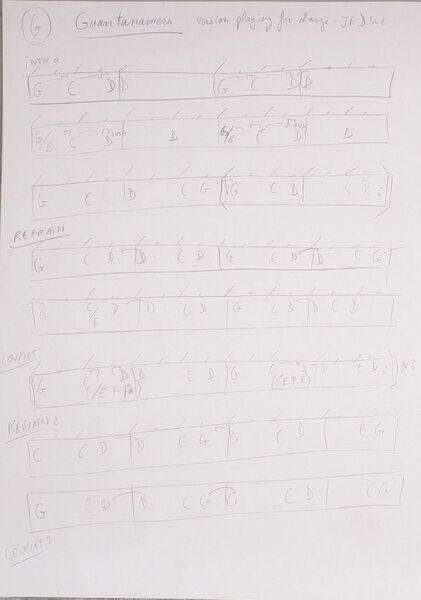 G Guantanamera version playing for change - JF Diaz
INTRO
G C D D G C D D
G/B C D D G/B C D D
G C D C G G C D C D
REFRAIN
G C D D C D G C D D C G
G C/E D D C D G C D D C D
COUPLET
G C D D C D G D D C D X3
(/E F F#) (/E F F)
REFRAIN 2
C C D D C G G C D C G
G C D D C G G C D C G
COUPLET 2